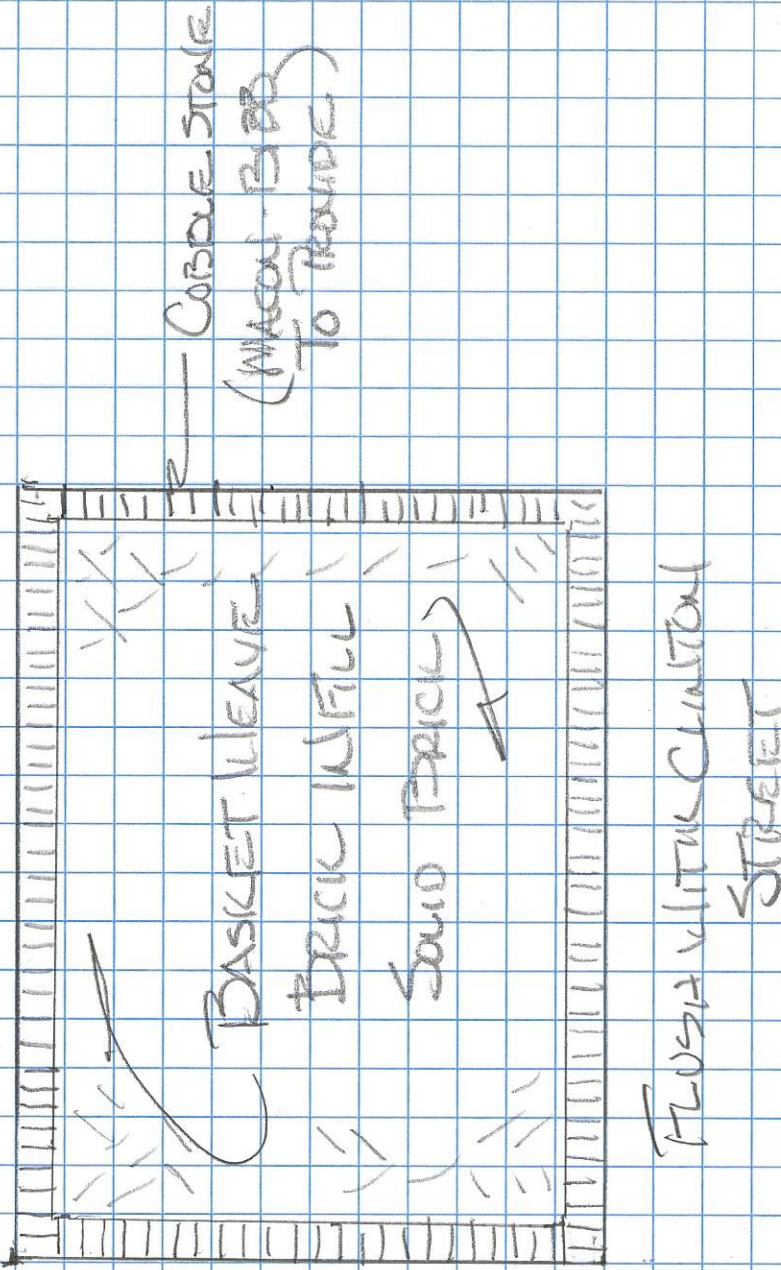 COBBLE STONE
(MACON-BIBB
TO PROVIDE)
BASKET WEAVE
BRICK INFILL
SOLID BRICK
FLUSH WITH CLINTON
STREET